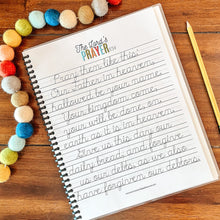 The Lord's
PRAYER
Pray then like this:
Our Father in heaven,
hallowed be your name.
Your kingdom come,
your will be done, on
earth as it is in heaven.
Give us this day our
daily bread, and forgive
us our debts, as we also
have forgiven our debtors.